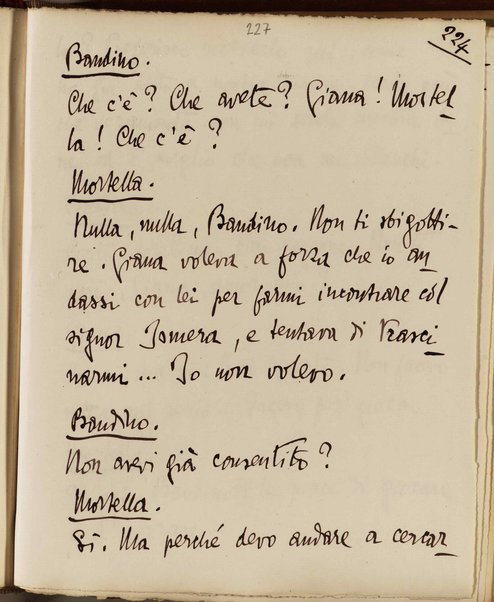 227
224
Bandino.
Che c'è? Che avete? Giana! Mortel
la! Che c'è?
Mortella.
Nulla, nulla, Bandino. Non ti sbigotti-
re. Giana voleva a forza che io an
dassi con lei per farmi incontrare col
signor Ismera, e tentava di trasci
narmi... Io non volevo.
Bandino.
Non avevi già consentito?
Mortella.
Sì. Ma perché devo andare a cercar